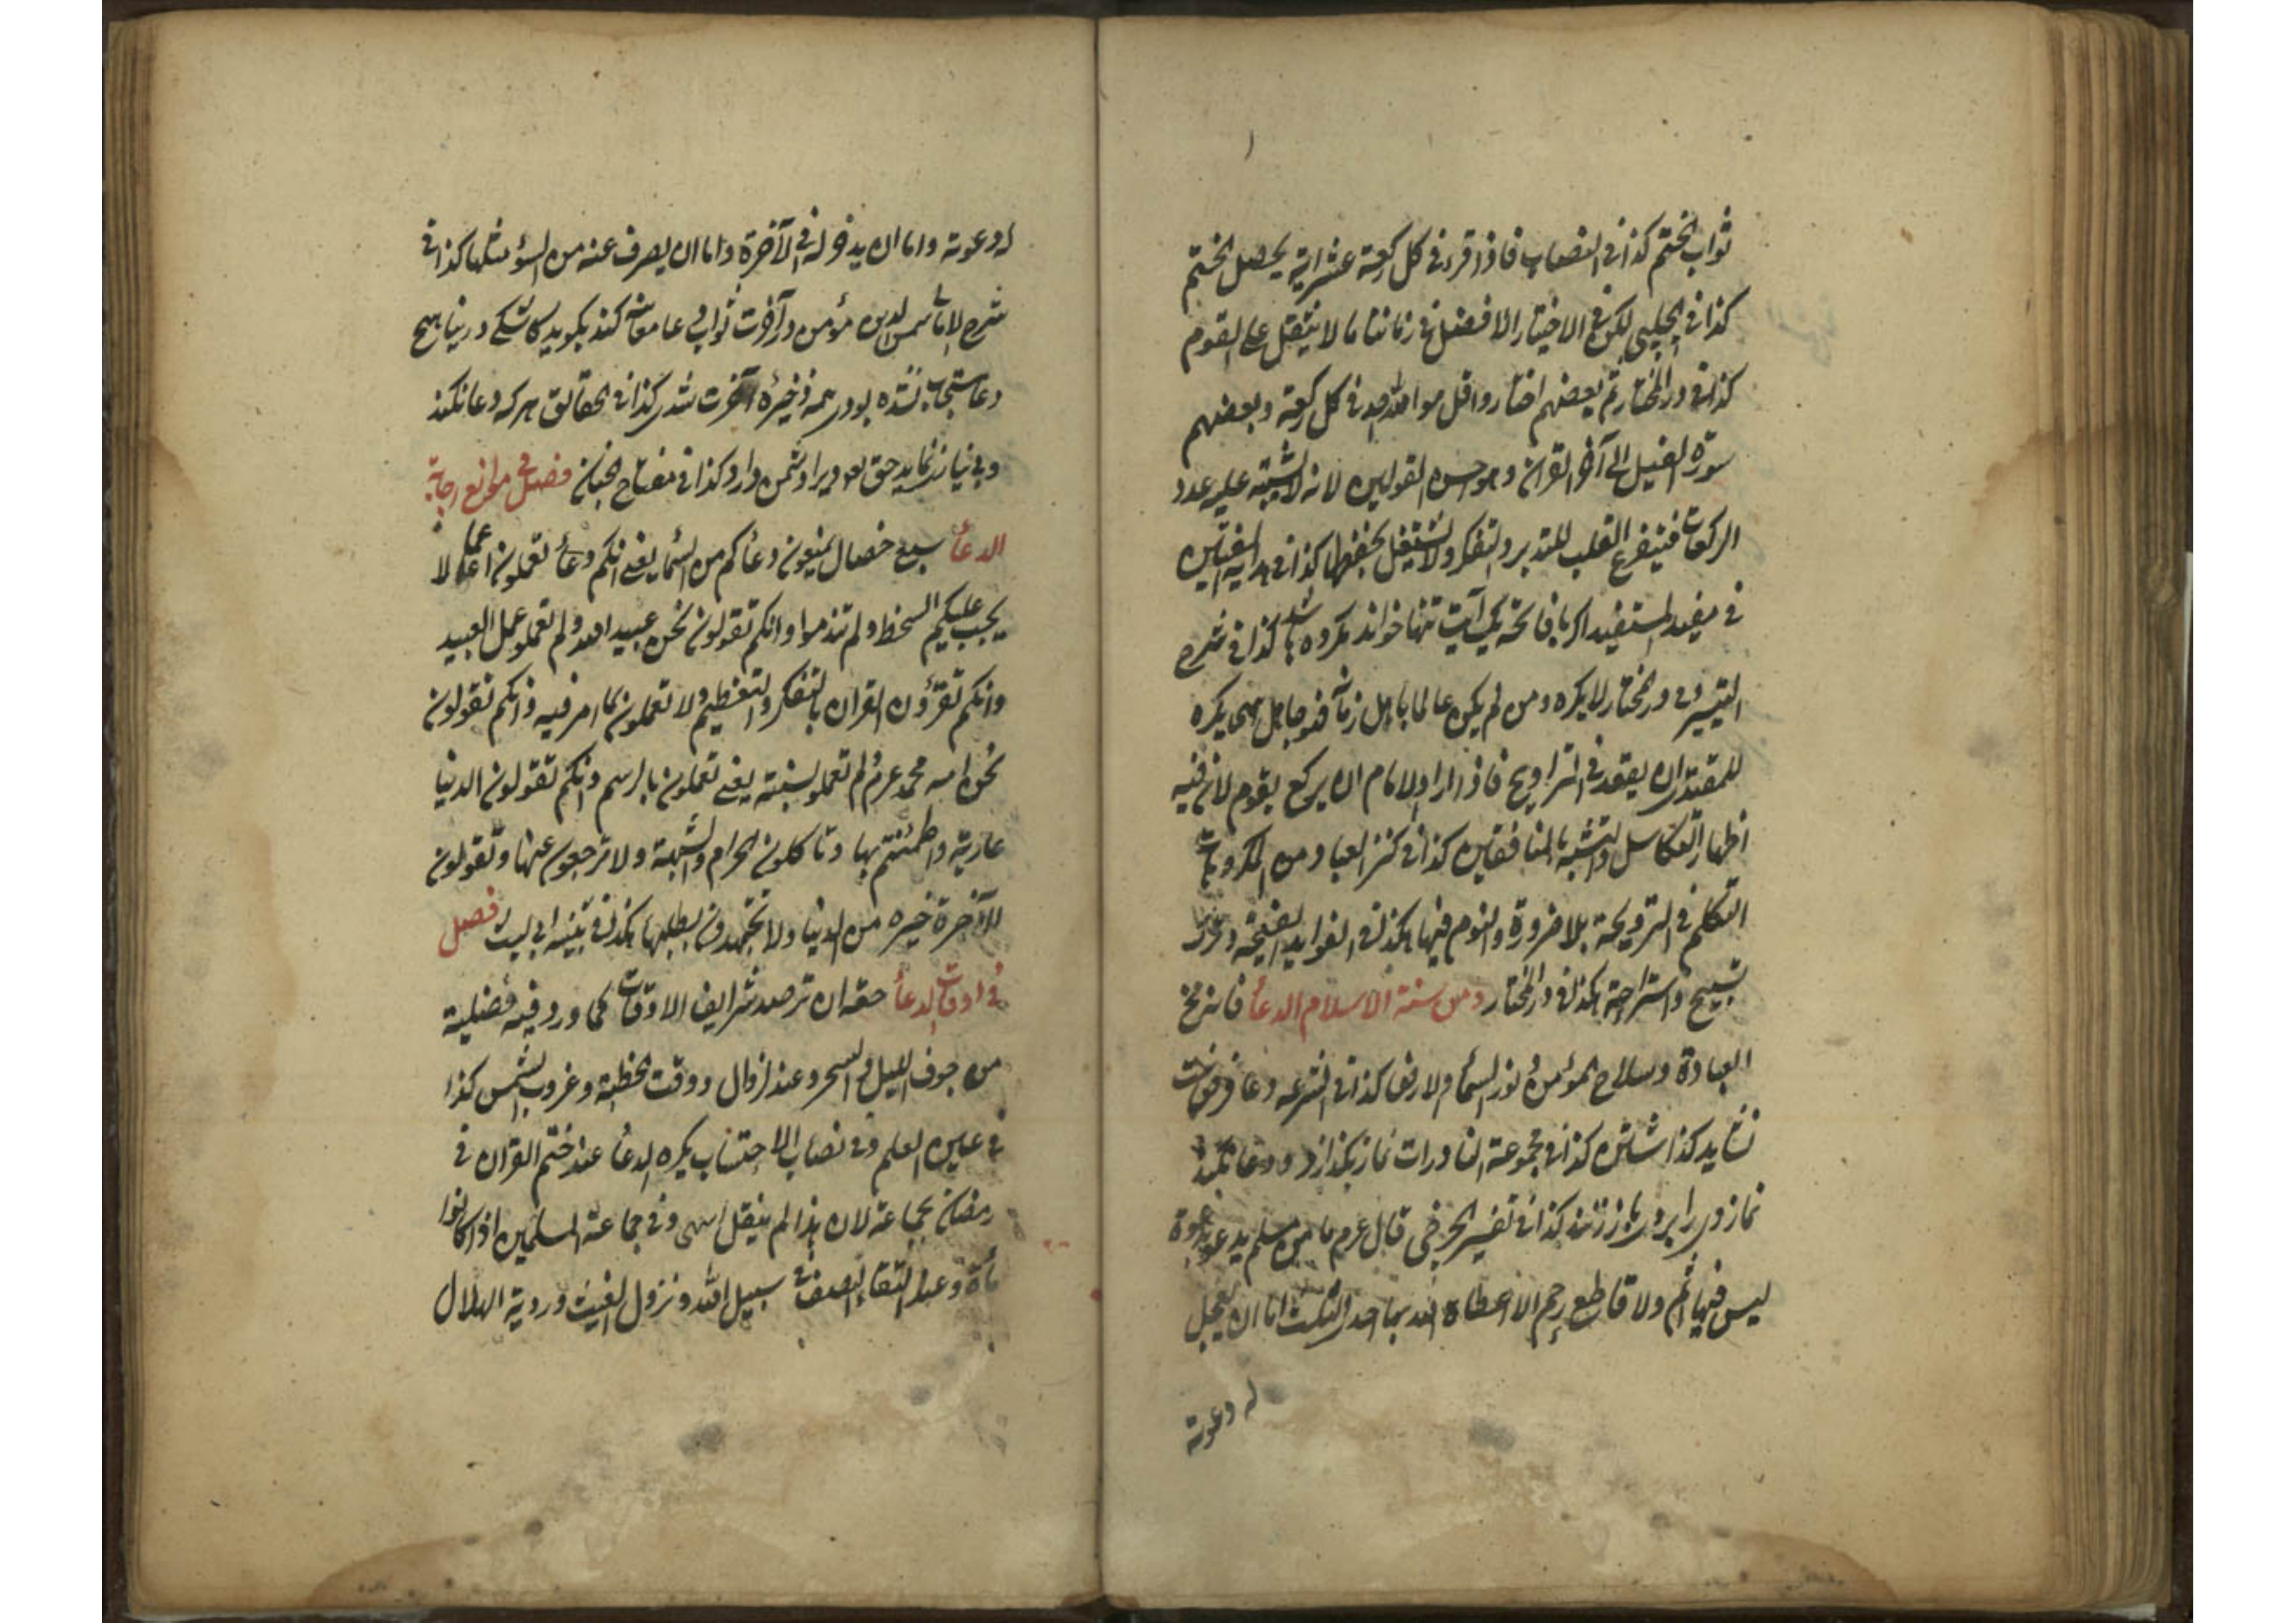 ثواب الختم كذا في النصاب فاذا قرء في كل ركعة عشر اية يحصل الختم
كذا في الچلپي لكن في الاختيار الافضل في زماننا ما لا يثقل على القوم
كذا في در المختار ثم بعضهم اختاروا قل هو الله احد في كل ركعة وبعضهم
سورة الفيل الى آخر القران وهو احسن القولين لانه لا يشتبه عليه عدد
الركعات فيتفرغ القلب للتدبر والتفكر ولا يشتغل بحفظها كذا في هداية المفتين
في مفيد المستفيد اكر با فاتحه يك آيت تنها خواند مكروه باشد كذا في شرح
التيسير وفي در المختار لا يكره ومن لم يكن عالما باهل زمانه فهو جاهل انتهى يكره
للمقتدي ان يقعد في التراويح فاذا اراد الامام ان يركع يقوم لان فيه
اظهار التكاسل والتشبه بالمنافقين كذا في كنز العباد ومن المكروهات
التكلم في الترويحة بلا ضرورة والنوم فيها هكذا في الفوايد
تسبيح واستراحة هكذا في در المختار ومن سنة الاسلام الدعأ فانه مخ
العبادة وسلاح المؤمن ونور السمأ والارض كذا في الشرعه دعا
نشايد كذاشتن كذا في مجموعة النادرات نماز بكذارد ودعا نكند
نماز وى را بروى باز زنند كذا في تفسير الچرخي قال عم ما من مسلم يدعو بدعوة
ليس فيها اثم ولا قاطع رحم الا اعطاه الله بها احدى الثلث اما ان يعجل
له دعوته
له دعوته واما ان يدخر له في الآخرة واما ان يصرف عنه من السوء مثلها كذا في
شرح الامام شمس الدين مؤمن در آخرت ثواب دعا معاينه كند بكويد كاشكى در دنيا هيچ
دعا مستجاب نشده بودى همه ذخيرۀ آخرت شدى كذا في الحقايق هر كه دعا نكند
وبي نياز نمايد حق تع ويرا دشمن دارد كذا في مفتاح الجنان فصل في موانع اجابة
الدعأ سبع خصال يمنعون دعأكم من السمأ يعنى انكم دعأ تعملون اعمالا
يجب عليكم السخط ولم تندموا وانكم تقولون نحن عبيد الله ولم تعملو عمل العبيد
وانكم تقرؤن القران بالتفكر والتعظيم ولا تعملون بما امر فيه وانكم تقولون
نحن امه محمد عم ولم تعملو بسنته يعنى تعملون بالرسم وانكم تقولون الدنيا
عارية واطمئنتم بها وتاكلون الحرام والشبهة ولا ترجعون عنها وتقولون
الآخرة خيره من الدنيا ولا تجتهدون بطلبها هكذا في تنبيه ابي ليث فصل
في اوقات الدعأ حقه ان ترصد شرايف الاوقات كما ورد فيه فضيلة
من جوف الليل والسحر وعند الزوال ووقت الخطبة وغروب الشمس كذا
في عين العلم وفي نصاب الاحتساب يكره الدعأ عند ختم القران في
رمضان بجماعة لان هذا لم ينقل انتهى وفي جماعة المسلمين اذا كانوا
مأة وعند التقاء الصف في سبيل الله ونزول الغيث ورؤية الهلال